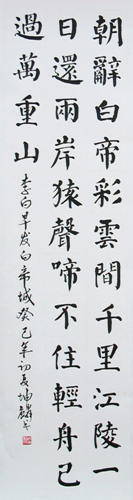 朝辭白帝彩雲間千里江陵一
日還兩岸猿聲啼不住輕舟已
過萬重山
李白早发白帝城癸巳年初夏坤麟书